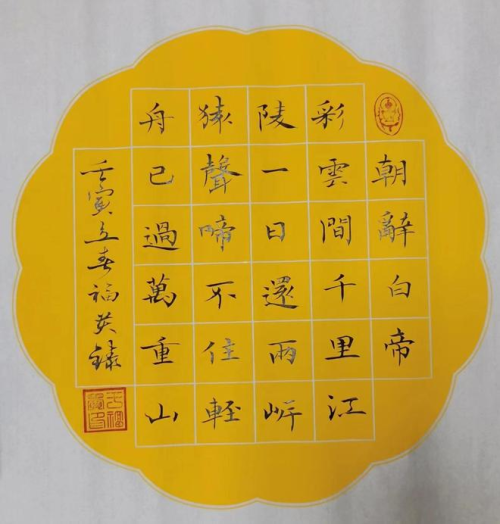 朝辭白帝
彩雲間千里江
陵一日還兩岸
猿聲啼不住輕
舟已過萬重山
壬寅立春福英錄